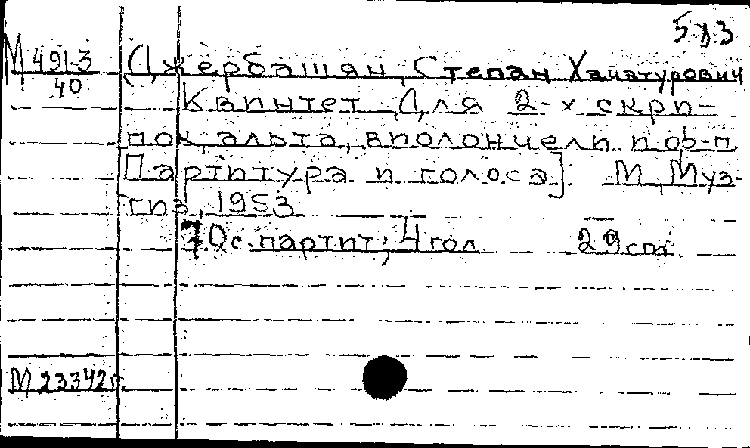 583
М 491-3 Джербашян, Степан Хачатурович
40
Квинтет Для 2-х скри-
пок, альта, виолончели и ф-п
Партитура и голоса] М, Муз-
гиз, 1953
70 с. партит; 4 гол 29 cm
М 23342